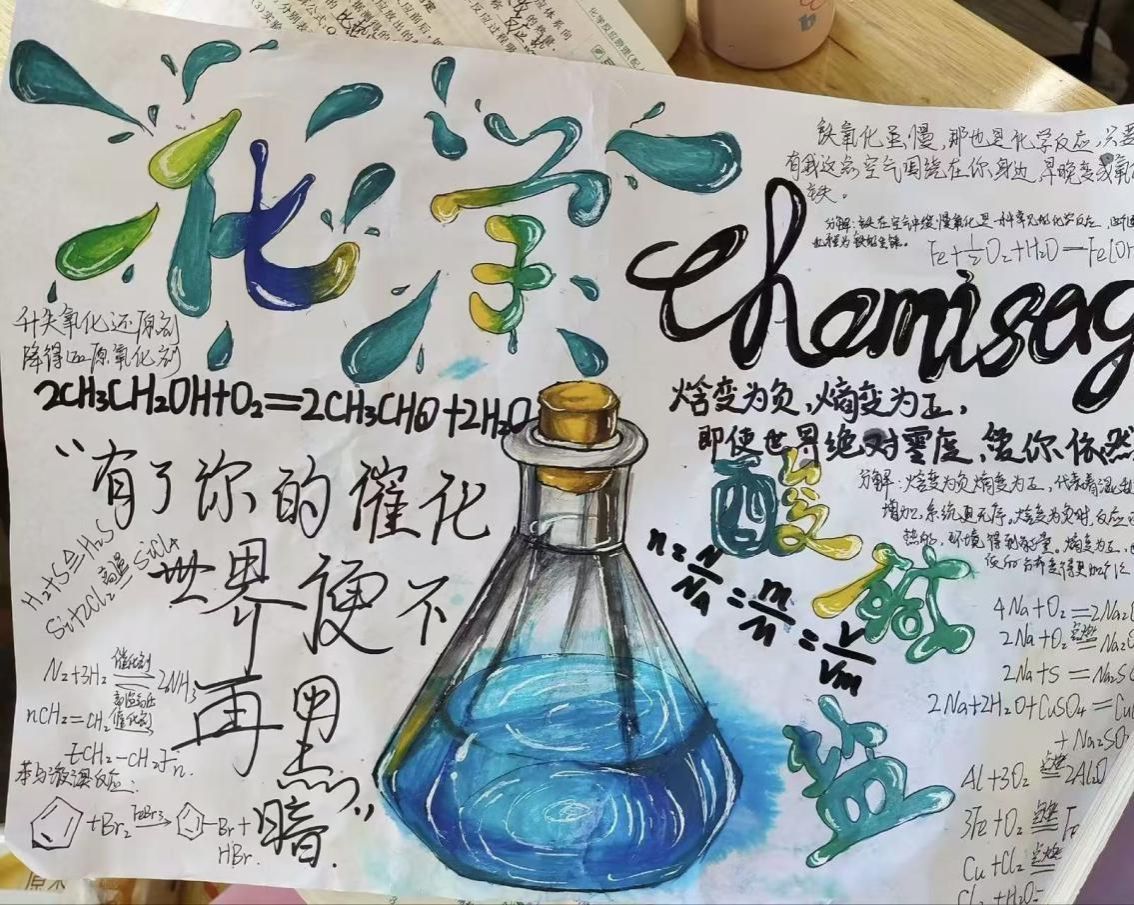 化学
Chemisag
铁氧化虽慢,那也是化学反应,只要
有我这气空气围绕在你身边,早晚变成氧
铁。
分解:铁在空气中缓慢氧化是一种常见的化学反应,
Fe+½O₂+H₂O=Fe(O
升失氧化还原剂
降得还原氧化剂
2CH₃CH₂OH+O₂=2CH₃CHO+2H₂O
焓变为负,熵变为正,
即使世界绝对零度,爱你依然
分解:焓变为负熵变为正,代表着混乱
增加,系统更无序。焓变为负时,反应
热的,环境得到能量。熵变为正,
“有了你的催化
世界便不
再黑
暗”
H₂+S≜H₂S
Si+2Cl₂ 高温 SiCl₄
N₂+3H₂ 催化剂 高温高压 2NH₃
nCH₂=CH₂ 催化剂
-[CH₂-CH₂]-n.
苯与液溴反应:
+Br₂ FeBr₃ -Br+
HBr.
酸
碱
盐
n=N/NA=m/M=V/Vm
4Na+O₂=2Na₂
2Na+O₂ 点燃 Na₂
2Na+S=Na₂S
2Na+2H₂O+CuSO₄=Cu
+Na₂SO
Al+3O₂ 点燃 2Al₂O
3Fe+O₂ 点燃 Fe
Cu+Cl₂ 点燃
Cl₂+H₂O=
化学反应原理(配